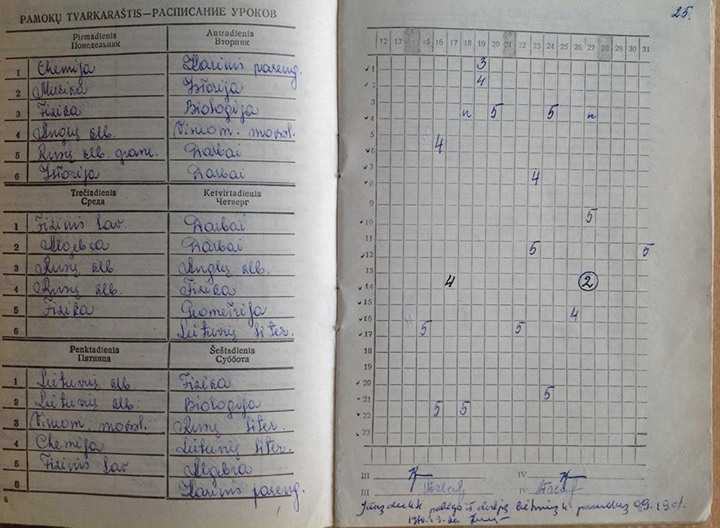 PAMOKŲ TVARKARAŠTIS—РАСПИСАНИЕ УРОКОВ
Pirmadienis
Понедельник
1 Chemija
2 Muzika
3 Fizika
4 Anglų klb.
5 Rusų klb. gram.
6 Istorija
Antradienis
Вторник
Karinis pareng.
Istorija
Biologija
Visuom. moksl.
Darbai
Darbai
Trečiadienis
Среда
1 Fizinis lav.
2 Algebra
3 Rusų klb.
4 Rusų klb.
5 Fizika
6
Ketvirtadienis
Четверг
Darbai
Darbai
Anglų klb.
Fizika
Geometrija
Lietuvių liter.
Penktadienis
Пятница
1 Lietuvių klb.
2 Lietuvių klb.
3 Visuom. moksl.
4 Chemija
5 Fizinis lav.
6
Šeštadienis
Суббота
Fizika
Biologija
Rusų liter.
Lietuvių liter.
Algebra
Karinis pareng.
6
25.
12 13 14 15 16 17 18 19 20 21 22 23 24 25 26 27 28 29 30 31
1 3
2 4
3
4 n 5 5 n
5
6 4
7
8 4
9
10 5
11
12 5 5
13
14 4 2
15
16 4
17 5 5
20
21 5
22 5 5
23
III IV
III IV